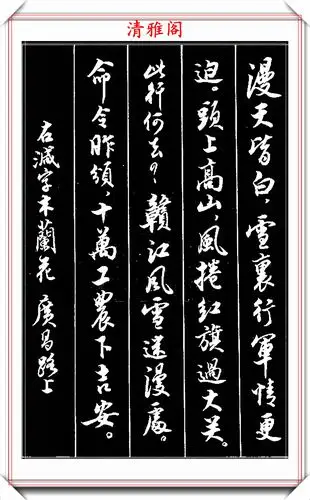 清雅阁
漫天皆白，雪裏行軍情更
迫。頭上高山，風捲紅旗過大关。
此行何去？贛江風雪迷漫處。
命令昨頒，十萬工農下吉安。
右減字木蘭花 廣昌路上